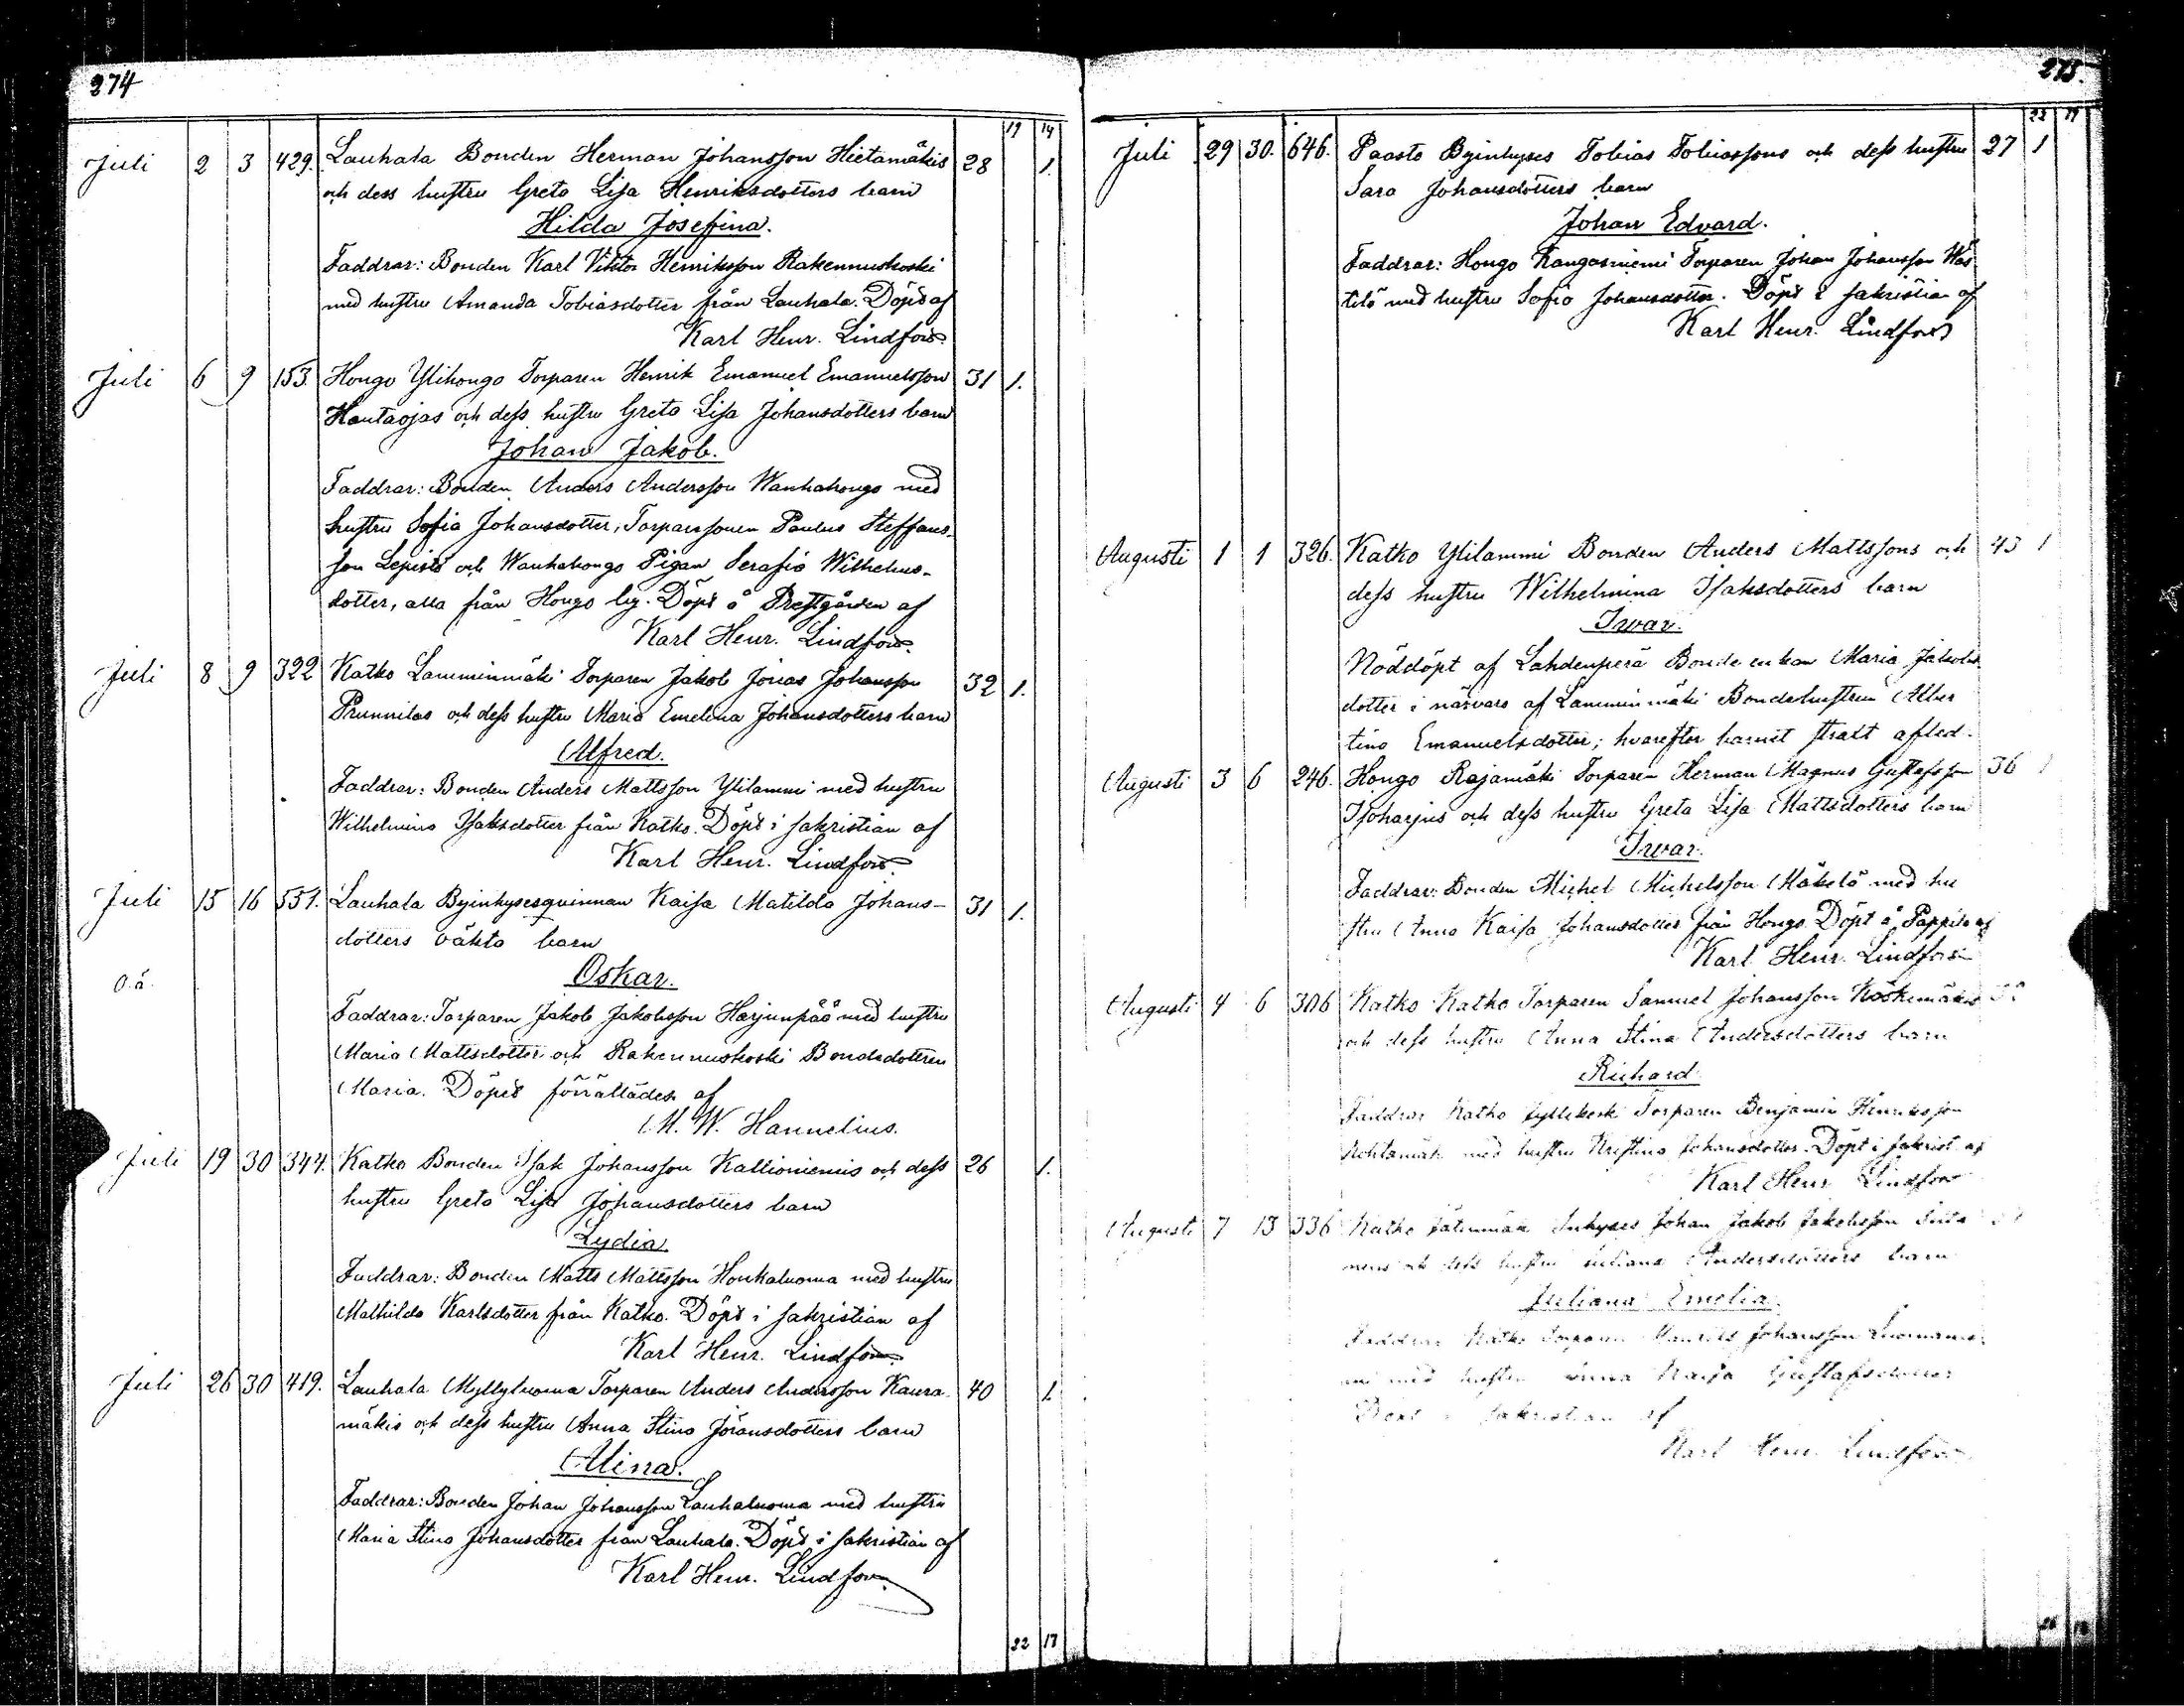 274
19 14
Juli 2 3 429. Lauhala Bonden Herman Johansson Hietamäkis 28 1.
och dess hustru Greta Lisa Henriksdotters barn
Hilda Josefina.
Faddrar: Bonden Karl Viktor Henriksson Rakennuskoski
med hustru Amanda Tobiasdotter från Lauhala. Döpt af
Karl Henr. Lindfors.
Juli 6 9 153. Hongo Ylihongo Torparen Henrik Emanuel Emanuelsson 31 1.
Hautaojas och dess hustru Greta Lisa Johansdotters barn
Johan Jakob.
Faddrar: Bonden Anders Andersson Wanhahongo med
hustru Sofia Johansdotter, Torparssonen Paulus Steffans-
son Lepistö och Wanhahongo Pigan Serafia Wilhelms-
dotter, alla från Hongo by. Döpt å Prestgården af
Karl Henr. Lindfors.
Juli 8 9 322 Katko Lamminmäki Torparen Jakob Jonas Johansson 32 1.
Prunnilas och dess hustru Maria Emelina Johansdotters barn
Alfred.
Faddrar: Bonden Anders Mattsson Ylilammi med hustru
Wilhelmina Isaksdotter från Katko. Döpt i sakristian af
Karl Henr. Lindfors.
Juli 15 16 551. Lauhala Byinhysesqvinnan Kaisa Matilda Johans- 31 1.
dotters oäkta barn
Oskar.
o.ä.
Faddrar: Torparen Jakob Jakobsson Harjunpää med hustru
Maria Mattsdotter och Rakennuskoski Bondedottren
Maria. Döpet förrättades af
M. W. Hannelius.
Juli 19 30 344. Katko Bonden Isak Johansson Kallioniemis och dess 26 1.
hustru Greta Lisa Johansdotters barn
Lydia.
Faddrar: Bonden Matts Mattsson Honkaluoma med hustru
Mathilda Karlsdotter från Katko. Döpt i sakristian af
Karl Henr. Lindfors.
Juli 26 30 419. Lauhala Myllyluoma Torparen Anders Andersson Kaura- 40 1.
mäkis och dess hustru Anna Stina Jöransdotters barn
Alina.
Faddrar: Bonden Johan Johansson Lauhaluoma med hustru
Maria Stina Johansdotter från Lauhala. Döpt i sakristian af
Karl Henr. Lindfors.
22 17
275.
22 17
Juli 29 30. 646. Paasto Byinhyses Tobias Tobiassons och dess hustru 27 1
Sara Johansdotters barn
Johan Edvard.
Faddrar: Hongo Kangasniemi Torparen Johan Johansson Wäs
tilä med hustru Sofia Johansdotter. Döpt i sakristian af
Karl Henr. Lindfors
Augusti 1 1 326. Katko Ylilammi Bonden Anders Mattssons och 43 1
dess hustru Wilhelmina Isaksdotters barn
Iwar.
Nöddöpt af Lahdenperä Bonde enkan Maria Jakobs
dotter i närvaro af Lamminmäki Bondehustrun Alber
tina Emanuelsdotter; hvarefter barnet straxt afled.
Augusti 3 6 246. Hongo Rajamäki Torparen Herman Magnus Gustafsson 36 1
Isoharjus och dess hustru Greta Lisa Mattsdotters barn
Iwar.
Faddrar: Bonden Michel Michelsson Mäkelä med hu
stru Anna Kaisa Johansdotter från Hongo. Döpt å Pappila af
Karl Henr. Lindfors
Augusti 4 6 306 Katko Katko Torparen Samuel Johansson Koskimäkis
och dess hustru Anna Stina Andersdotters barn
Richard
Faddrar Katko Torparen Benjamin Henriksson
med hustru Kristina Johansdotter. Döpt i sakrist. af
Karl Henr Lindfors
Augusti 7 13 336 Katko Inhyses Johan Jakob Jakobsson
och dess hustru Juliana Andersdotters barn
Juliana Emelia.
Faddrar Katko Torparen Johansson
med hustru Anna Kaisa Gustafsdotter
Döpt i sakristian af
Karl Henr. Lindfors